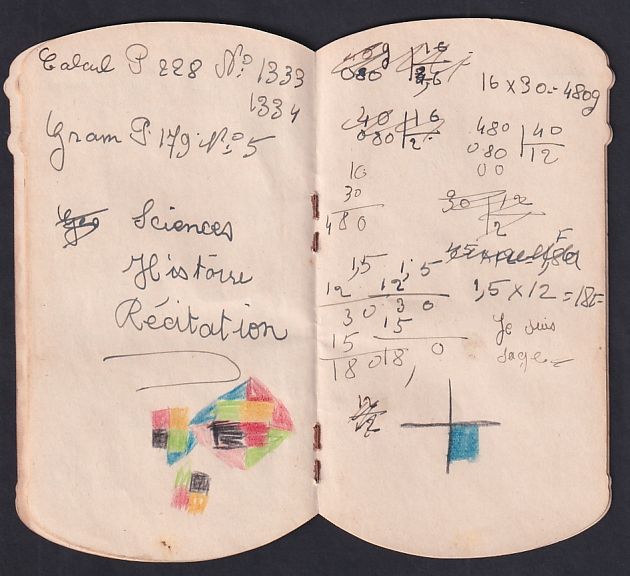 Calcul P 228 N° 1333
1334
Gram P. 179. N° 5
Sciences
Histoire
Récitation
16 x 30 = 480g
40 | 16
080 | 2
480 | 40
080 | 12
00
30
480
30 | 12
2
1,5
12
30
15
18 0
1,5
12
3 0
15
18, 0
1,5 x 12 = 18F
Je suis
sage